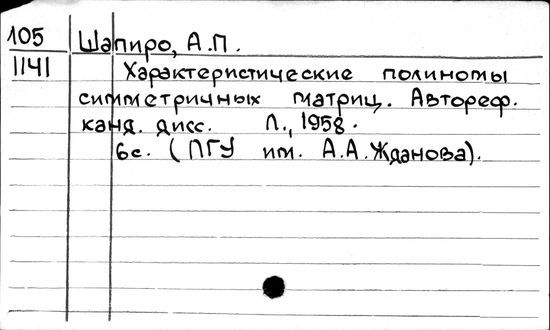 105 Шапиро, А.П.
1141 Характеристические полиномы
симметричных матриц. Автореф.
канд. дисс. Л., 1958.
6с. (ЛГУ им. А.А.Жданова).